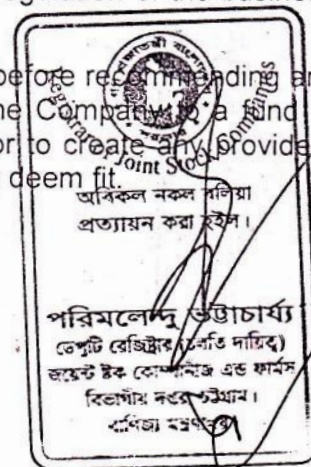 before recommending an
the Company to a fund
or to create any provide
deem fit.
Registrar of Joint Stock Companies
অবিকল নকল বলিয়া
প্রত্যায়ন করা হইল।
পরিমলেন্দু ভট্টাচার্য্য
ডেপুটি রেজিষ্ট্রার (চলতি দায়িত্ব)
জয়েন্ট ষ্টক কোম্পানিজ এন্ড ফার্মস
বিভাগীয় দপ্তর চট্টগ্রাম।
বাণিজ্য মন্ত্রণালয়